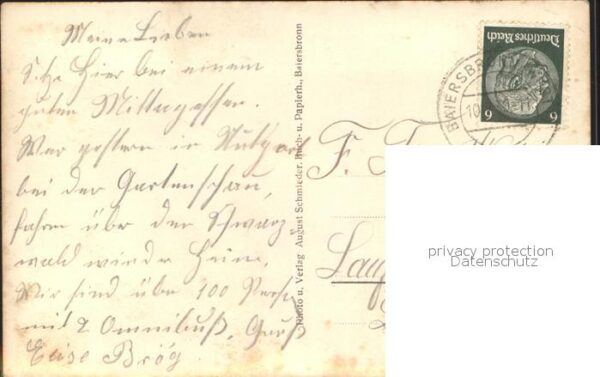 Meine Lieben
Sitze Hier bei einem
guten Mittagessen.
War gestern in Stutgart
bei der Gartenschau,
fahren über der Schwarz-
wald wieder Heim,
Wir sind über 100 Perso
mit 2 Omnibuß, Gruß
Brög
Photo u. Verlag August Schmieder, Buch- u. Papierh., Baiersbronn
Deutsches Reich
6 6
BAIERSBR
10
F.
privacy protection
Datenschutz